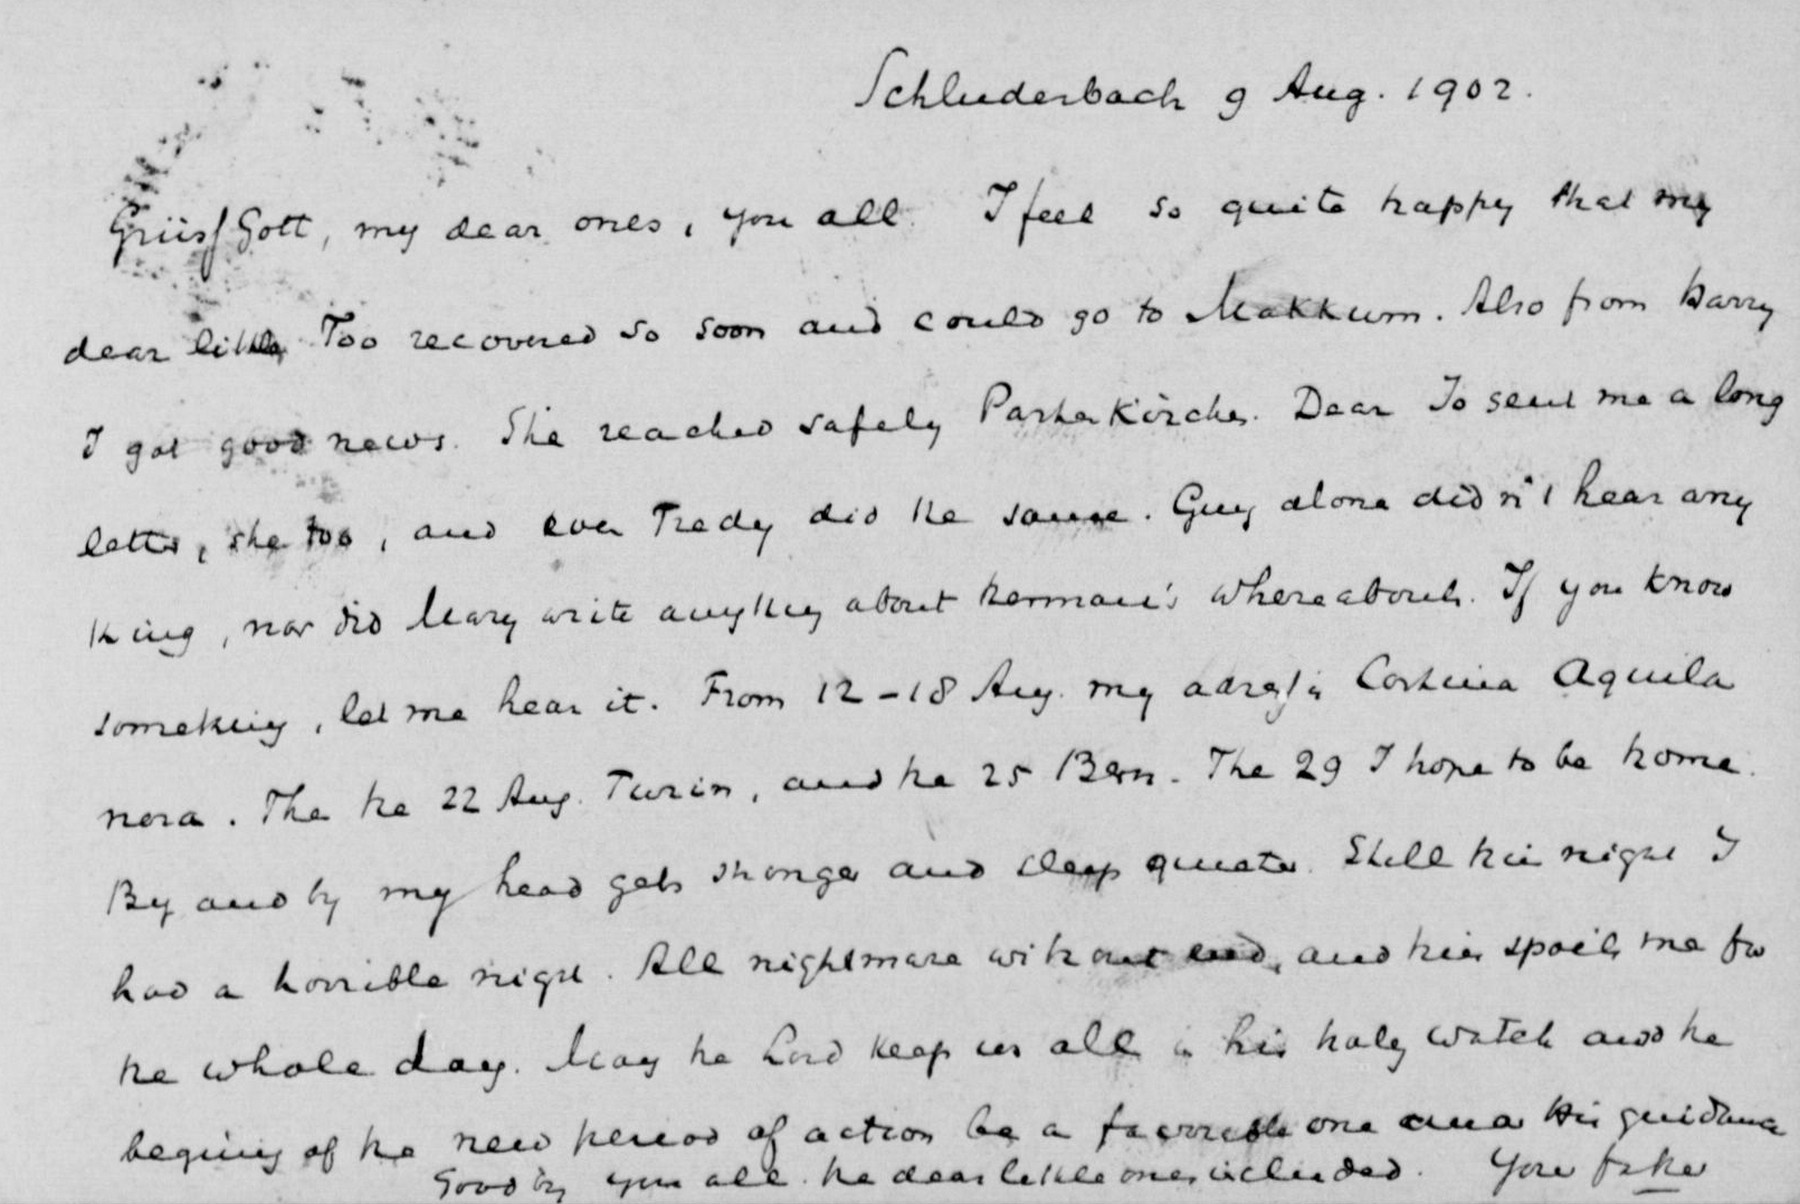 Schluderbach 9 Aug. 1902.
Grüss Gott, my dear ones, you all. I feel so quite happy that my
dear little Too recovered so soon and could go to Makkum. Also from Harry
I got good news. She reached safely Partenkirchen. Dear Jo sent me a long
letter, she too, and even Fredy did the same. Guy alone didn't hear any
thing, nor did Mary write anything about Herman's whereabouts. If you know
something, let me hear it. From 12-18 Aug. my adress is Cortina Aquila
nera. The the 22 Aug. Turin, and the 25 Bern. The 29 I hope to be home.
By and by my head gets stronger and sleep quieter. Still this night I
had a horrible night. All nightmare without end, and this spoils me for
the whole day. May the Lord keep us all in his holy watch and the
begining of the new period of action be a favorable one under His guidance
Good by you all. the dear little ones included. Your father